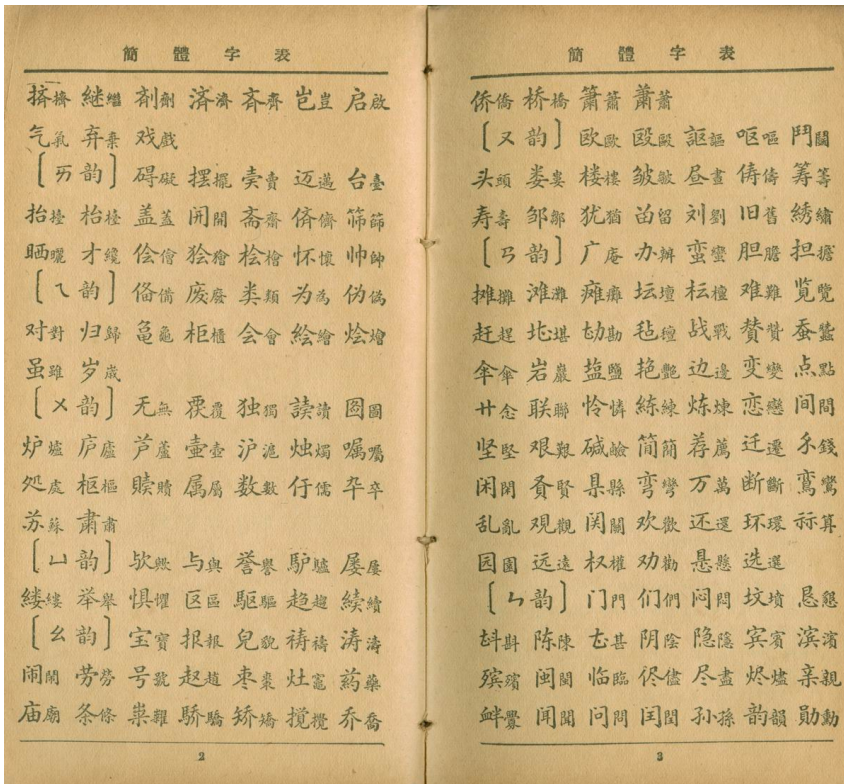 簡體字表
挤擠 継繼 剤劑 済濟 斉齊 岂豈 启啟
气氣 弃棄 戏戲
〔ㄞ韵〕 碍礙 摆擺 卖賣 迈邁 台臺
抬擡 枱檯 盖蓋 開開 斋齋 侪儕 筛篩
晒曬 才纔 侩儈 狯獪 桧檜 怀懷 帅帥
〔ㄟ韵〕 俻備 废廢 类類 为為 伪偽
对對 归歸 亀龜 柜櫃 会會 絵繪 烩燴
虽雖 岁歲
〔ㄨ韵〕 无無 覆 独獨 読讀 图圖
炉爐 庐廬 芦蘆 壷壺 沪滬 烛燭 嘱囑
処處 枢樞 贖贖 属屬 数數 伃儒 卆卒
苏蘇 粛肅
〔ㄩ韵〕 欤歟 与與 誉譽 馿驢 屡屢
縷縷 举舉 惧懼 区區 駆驅 趋趨 続續
〔ㄠ韵〕 宝寶 报報 皃貌 祷禱 涛濤
闹鬧 劳勞 号號 赵趙 枣棗 灶竈 药藥
庙廟 条條 粜糶 驕驕 矫矯 搅攪 乔喬
2
簡體字表
侨僑 桥橋 簫簫 蕭蕭
〔ㄡ韵〕 欧歐 殴毆 謳謳 呕嘔 鬥鬭
头頭 娄婁 楼樓 皱皺 昼晝 俦儔 筹籌
寿壽 邹鄒 犹猶 畄留 刘劉 旧舊 綉繡
〔ㄢ韵〕 广庵 办辦 蛮蠻 胆膽 担擔
摊攤 滩灘 瘫癱 坛壇 枟檀 难難 览覽
赶趕 堪 勘 毡氈 战戰 賛贊 蚕蠶
伞傘 岩巖 塩鹽 艳艷 边邊 变變 点點
廿念 联聯 怜憐 練練 炼煉 恋戀 间間
坚堅 艰艱 碱鹼 简簡 荐薦 迁遷 錢
闲閑 贤賢 県縣 弯彎 万萬 断斷 鸾鸞
乱亂 观觀 関關 欢歡 还還 环環 祘算
园園 远遠 权權 劝勸 悬懸 选選
〔ㄣ韵〕 门門 们們 闷悶 坟墳 恳懇
斟斟 陈陳 甚 阴陰 隐隱 宾賓 滨濱
殡殯 闽閩 临臨 侭儘 尽盡 烬燼 亲親
衅釁 闻聞 问問 闰閏 孙孫 韵韻 勛勳
3